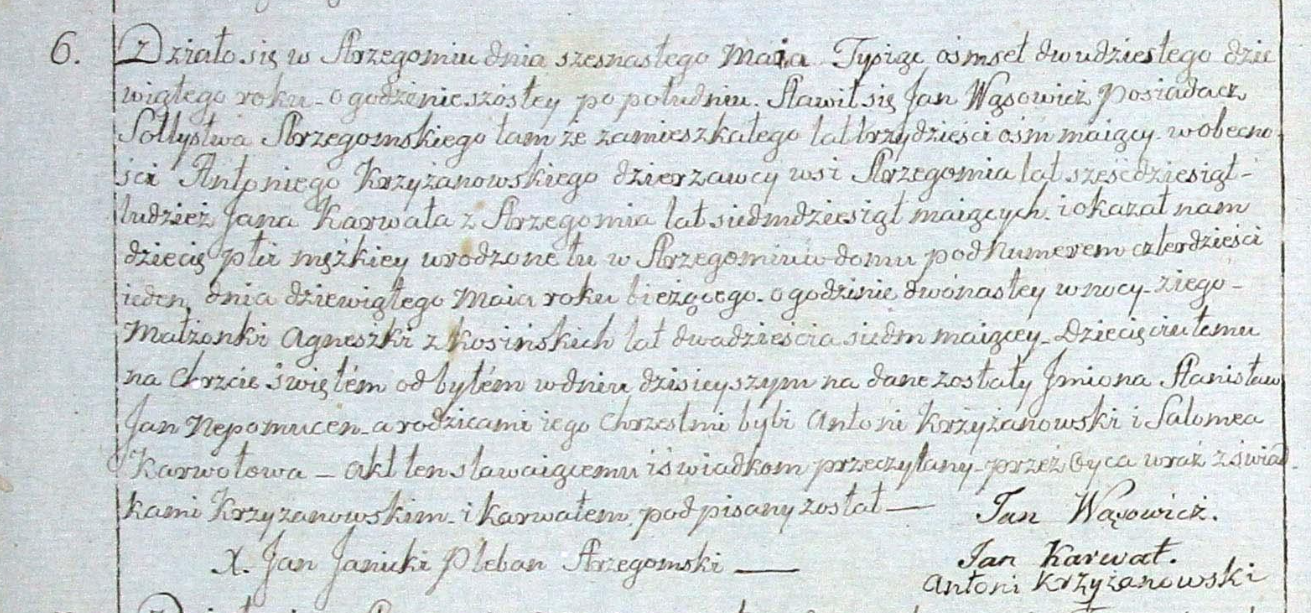 6. Działo się w Strzegomiu dnia szesnastego Maia Tysiąc ośmset dwudziestego dzie
wiątego roku o godzinie szóstey po południu. Stawił się Jan Wąsowicz Posiadacz
Sołtystwa Strzegomskiego tam że zamieszkałego lat trzydzieści ośm maiący w obecno-
ści Antoniego Krzyżanowskiego dzierzawcy wsi Strzegomia lat sześćdziesiąt-
tudzież Jana Karwata z Strzegomia lat siedmdziesiąt maiących. i okazał nam
dziecię płci męzkiey urodzone tu w Strzegomiu w domu pod Numerem czterdzieści
ieden, dnia dziewiątego Maia roku bieżącego o godzinie dwónastey w nocy z iego-
Małżonki Agneszki z Kosińskich lat dwadzieścia siedm maiącey. Dziecięciu temu
na Chrzcie świętém odbytém w dniu dzisieyszym nadane zostały Jmiona Stanisław
Jan Nepomucen a rodzicami iego Chrzestnemi byli Antoni Krzyżanowski i Salomea
Karwotowa – akt ten stawaiącemu i świadkom przeczytany przez Oyca wraz z świad
kami Krzyzanowskim i Karwatem podpisany został — Jan Wąsowicz.
X. Jan Janicki Pleban Strzegomski — Jan Karwat.
Antoni Krzyżanowski